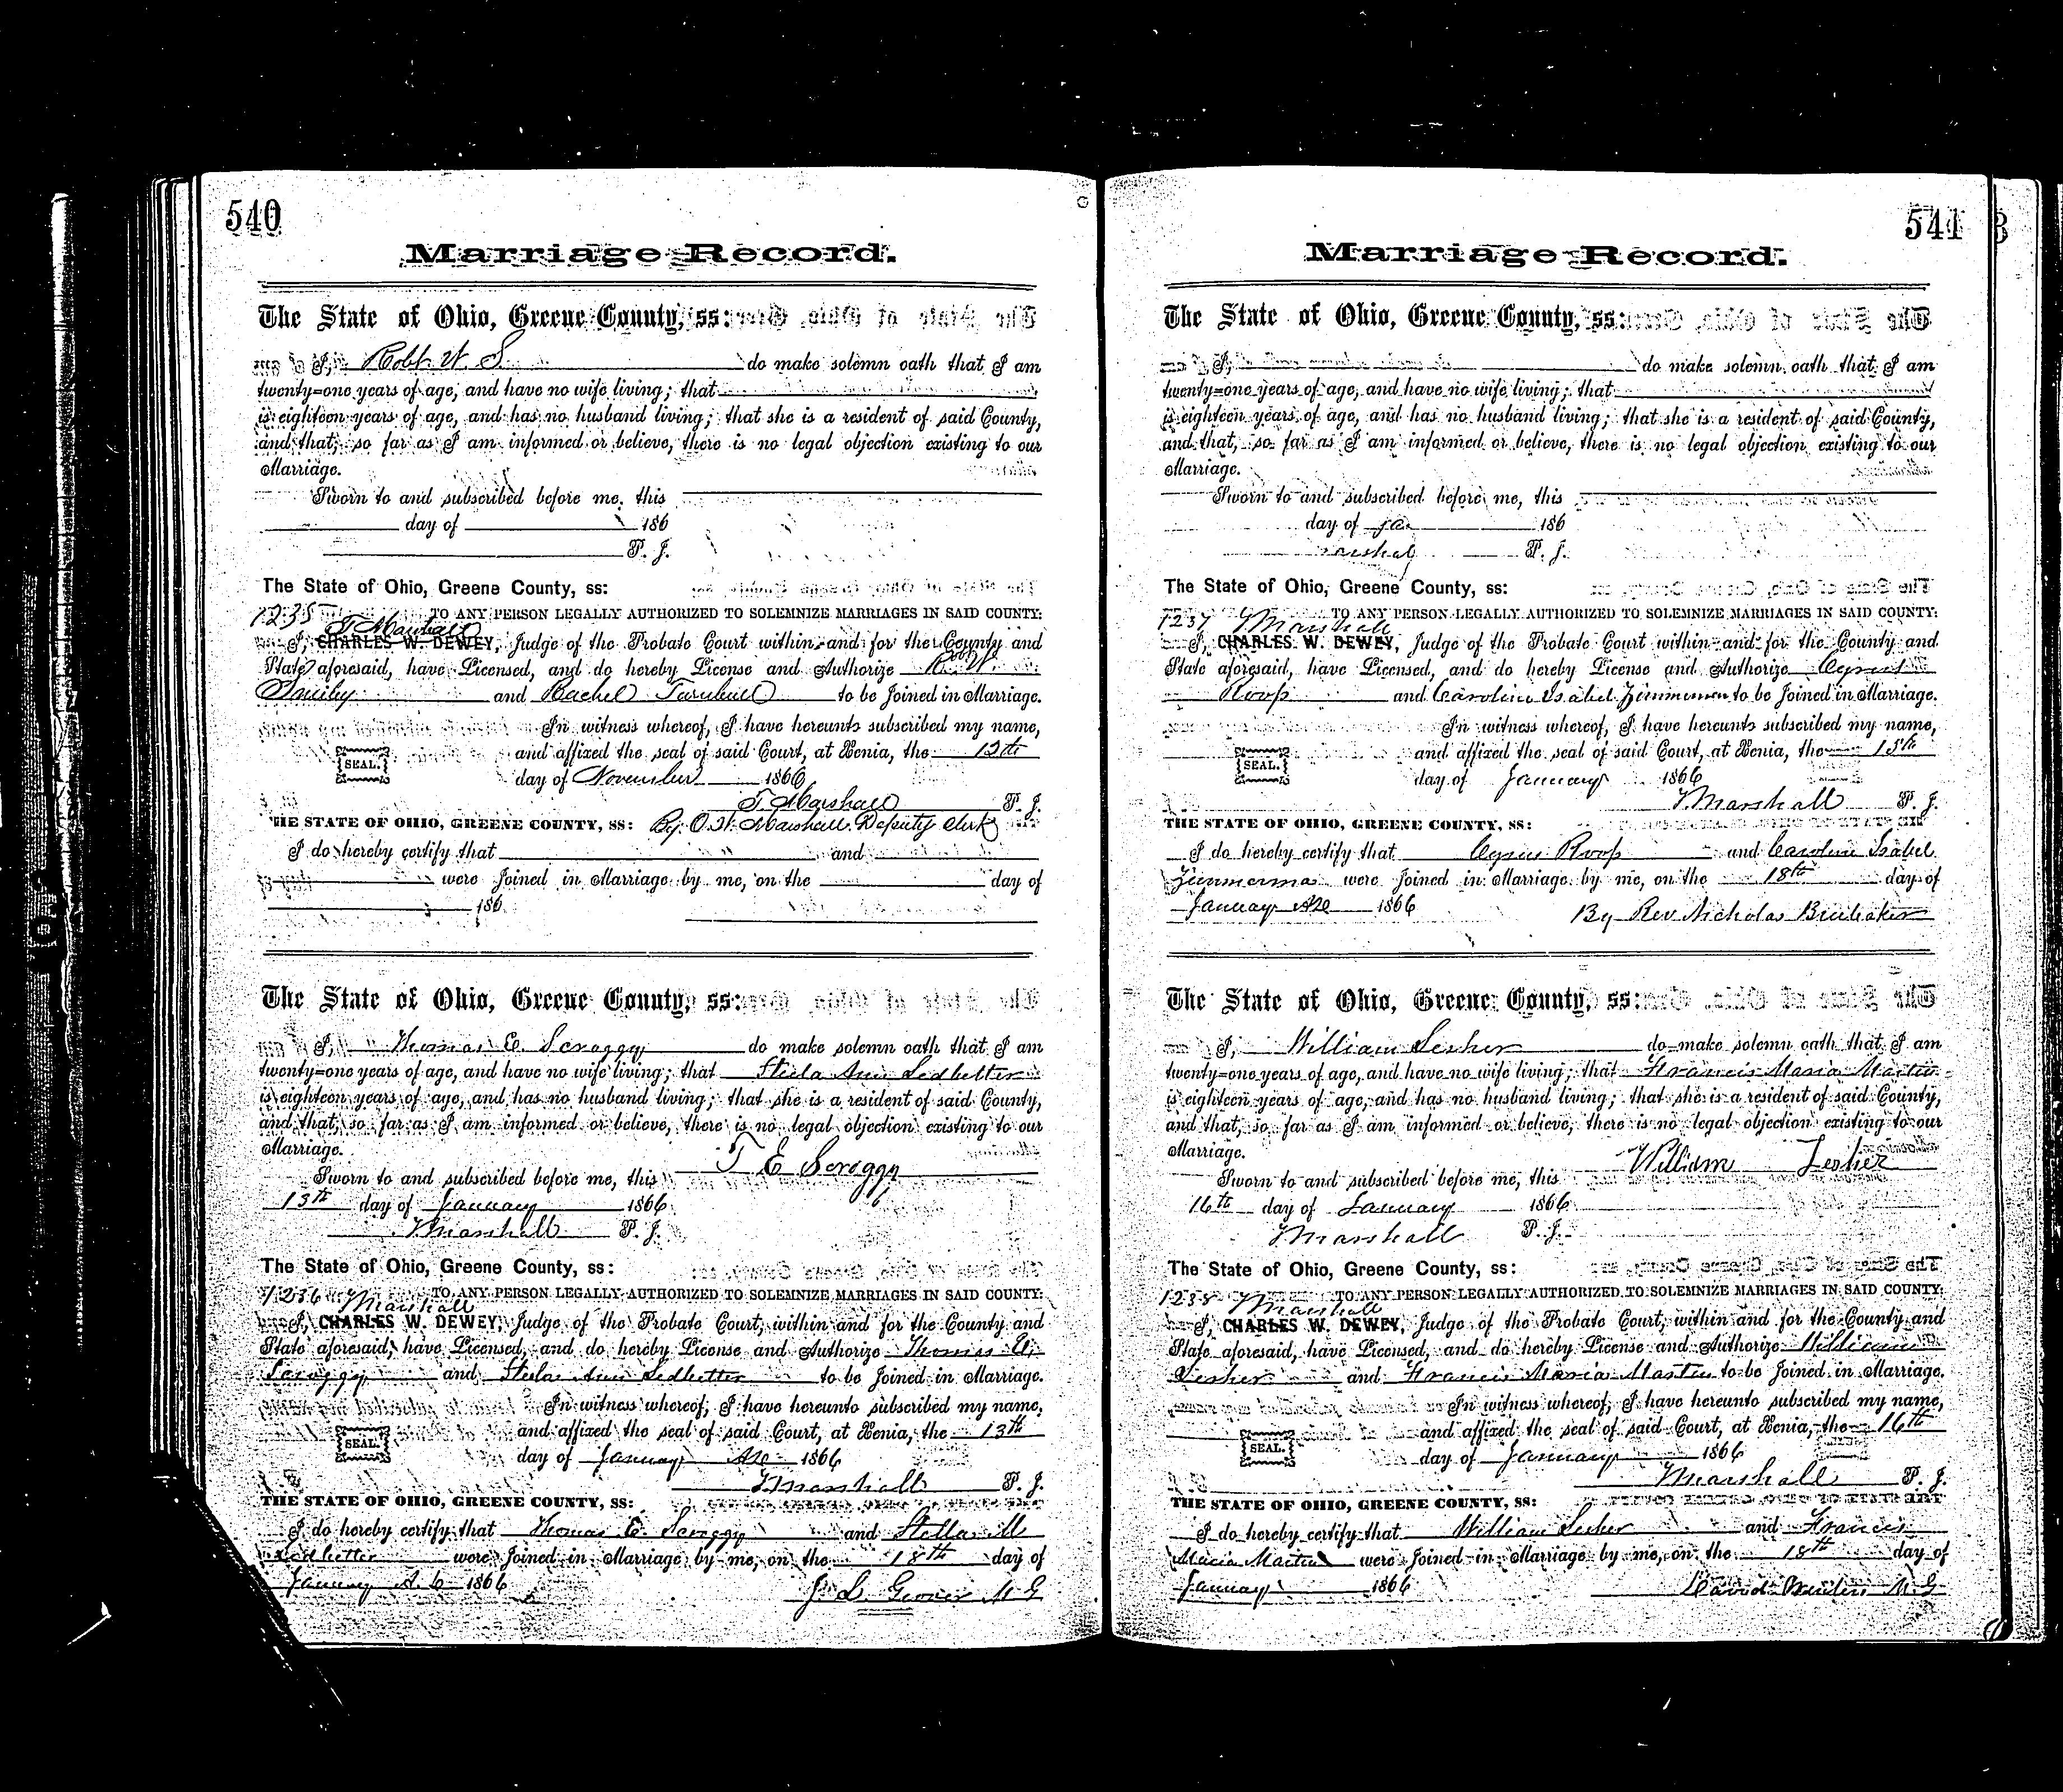 540
Marriage Record.
The State of Ohio, Greene County, ss:
I, Robt. W. S. do make solemn oath that I am
twenty=one years of age, and have no wife living; that
is eighteen years of age, and has no husband living; that she is a resident of said County,
and that, so far as I am informed or believe, there is no legal objection existing to our
Marriage.
Sworn to and subscribed before me, this
day of 186
P. J.
The State of Ohio, Greene County, ss:
1235 TO ANY PERSON LEGALLY AUTHORIZED TO SOLEMNIZE MARRIAGES IN SAID COUNTY:
T Marshall
I, CHARLES W. DEWEY, Judge of the Probate Court within and for the County and
State aforesaid, have Licensed, and do hereby License and Authorize
and Rachel Turnbull to be Joined in Marriage.
In witness whereof, I have hereunto subscribed my name,
and affixed the seal of said Court, at Xenia, the 12th
SEAL.
day of November 1866
T. Marshall P. J.
THE STATE OF OHIO, GREENE COUNTY, SS: By O. H. Marshall Deputy Clerk
I do hereby certify that and
were Joined in Marriage by me, on the day of
186
The State of Ohio, Greene County, ss:
I, Thomas E. Scroggy do make solemn oath that I am
twenty=one years of age, and have no wife living; that Stella Ann Ledbetter
is eighteen years of age, and has no husband living; that she is a resident of said County,
and that, so far as I am informed or believe, there is no legal objection existing to our
Marriage.
T E Scroggy
Sworn to and subscribed before me, this
13th day of January 1866
T Marshall P. J.
The State of Ohio, Greene County, ss:
1236 TO ANY PERSON LEGALLY AUTHORIZED TO SOLEMNIZE MARRIAGES IN SAID COUNTY:
T Marshall
I, CHARLES W. DEWEY, Judge of the Probate Court, within and for the County and
State aforesaid, have Licensed, and do hereby License and Authorize Thomas E.
Scroggy and Stella Ann Ledbetter to be Joined in Marriage.
In witness whereof, I have hereunto subscribed my name,
and affixed the seal of said Court, at Xenia, the 13th
SEAL.
day of January 1866
T Marshall P. J.
THE STATE OF OHIO, GREENE COUNTY, SS:
I do hereby certify that Thomas E. Scroggy and Stella
Ledbetter were Joined in Marriage by me, on the 18th day of
January 1866
M G
541
Marriage Record.
The State of Ohio, Greene County, ss:
I, do make solemn oath that I am
twenty=one years of age, and have no wife living; that
is eighteen years of age, and has no husband living; that she is a resident of said County,
and that, so far as I am informed or believe, there is no legal objection existing to our
Marriage.
Sworn to and subscribed before me, this
day of Jan 186
arshal P. J.
The State of Ohio, Greene County, ss:
1237 TO ANY PERSON LEGALLY AUTHORIZED TO SOLEMNIZE MARRIAGES IN SAID COUNTY:
T Marshall
I, CHARLES W. DEWEY, Judge of the Probate Court within and for the County and
State aforesaid, have Licensed, and do hereby License and Authorize Cyrus
Roop and Caroline Isabel Zimmerman to be Joined in Marriage.
In witness whereof, I have hereunto subscribed my name,
and affixed the seal of said Court, at Xenia, the 15th
SEAL.
day of January 1866
T Marshall P. J.
THE STATE OF OHIO, GREENE COUNTY, SS:
I do hereby certify that Cyrus Roop and Caroline Isabel
Zimmerma were Joined in Marriage by me, on the 18th day of
January 1866
By Rev Nicholas Brubaker
The State of Ohio, Greene County, ss:
I, William Lesher do make solemn oath that I am
twenty=one years of age, and have no wife living; that Francis Maria Martin
is eighteen years of age, and has no husband living; that she is a resident of said County,
and that, so far as I am informed or believe, there is no legal objection existing to our
Marriage.
William Lesher
Sworn to and subscribed before me, this
16th day of January 1866
T Marshall P. J.
The State of Ohio, Greene County, ss:
1238 TO ANY PERSON LEGALLY AUTHORIZED TO SOLEMNIZE MARRIAGES IN SAID COUNTY:
T Marshall
I, CHARLES W. DEWEY, Judge of the Probate Court, within and for the County and
State aforesaid, have Licensed, and do hereby License and Authorize William
Lesher and Francis Maria Martin to be Joined in Marriage.
In witness whereof, I have hereunto subscribed my name,
and affixed the seal of said Court, at Xenia, the 16th
SEAL.
day of January 1866
T Marshall P. J.
THE STATE OF OHIO, GREENE COUNTY, SS:
I do hereby certify that William Lesher and Francis
Maria Martin were Joined in Marriage by me, on the 18th day of
January 1866
David M G